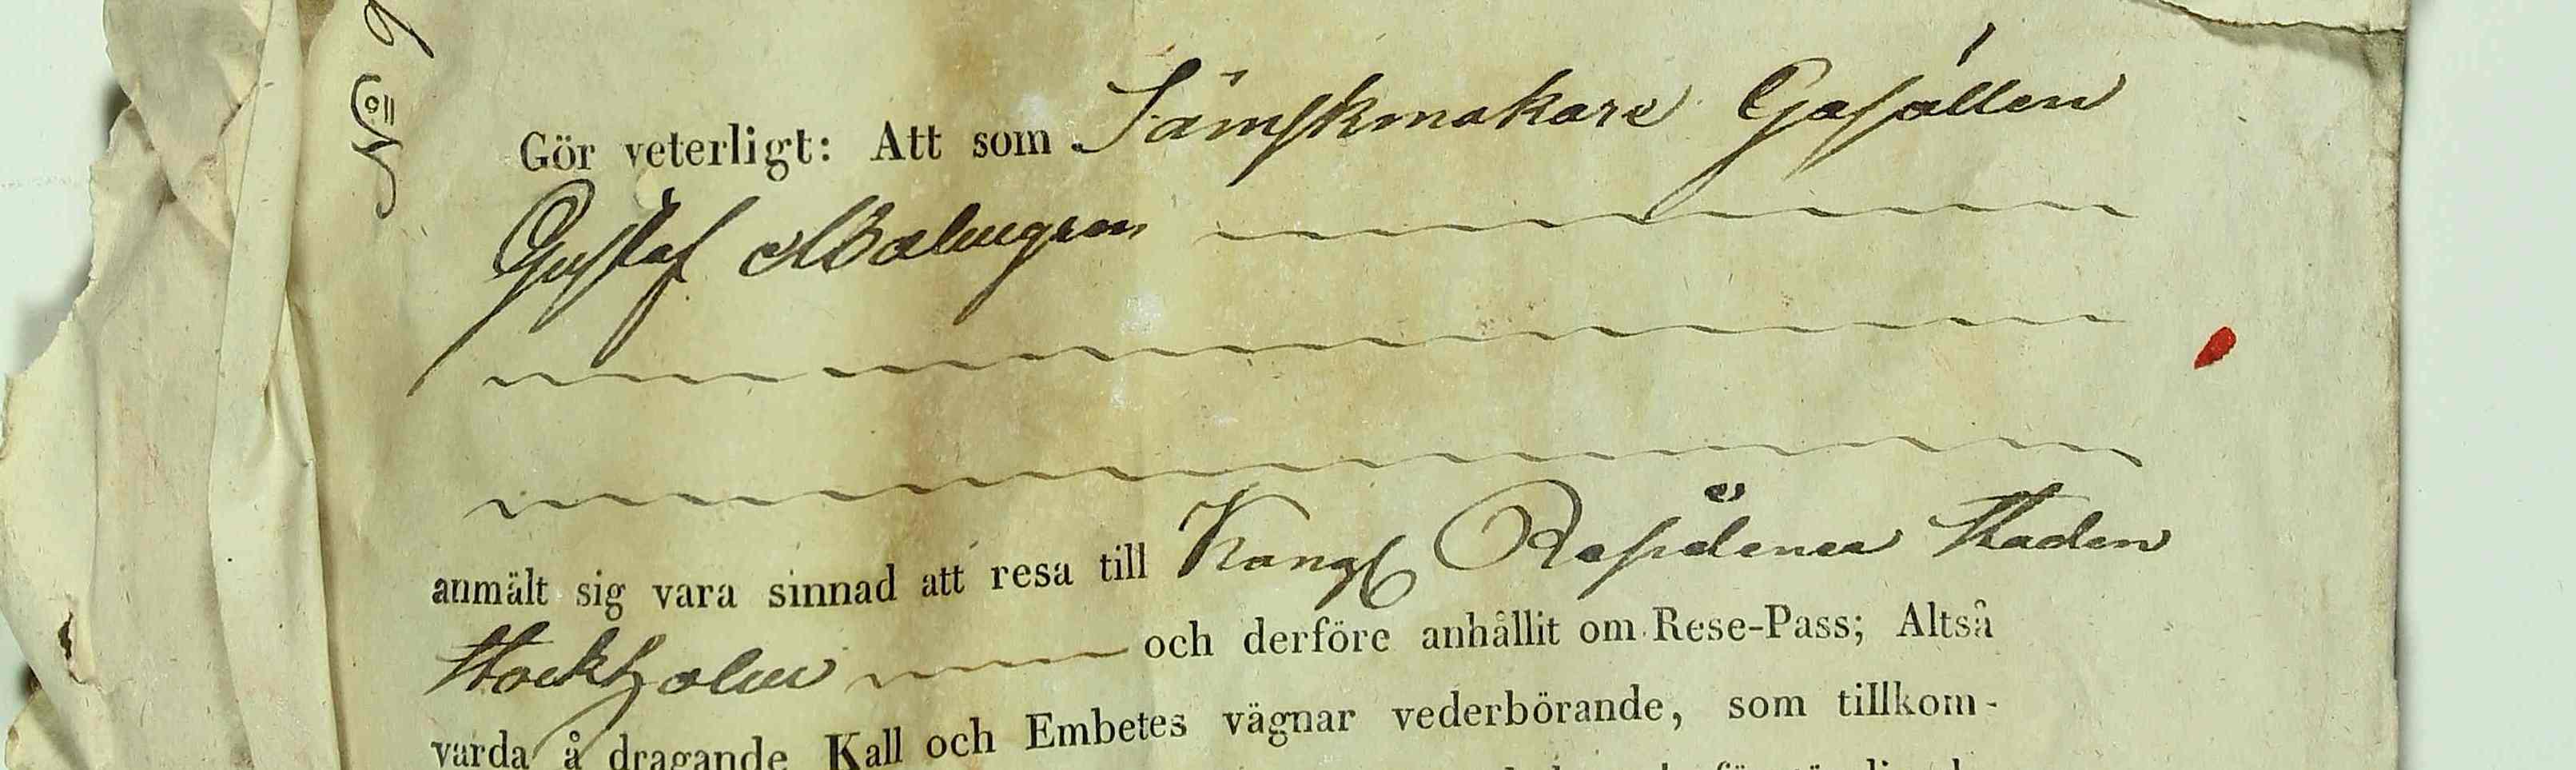 No 9
Gör veterligt: Att som Sämskmakare Gesällen
Gustaf Malmgren
anmält sig vara sinnad att resa till Kongl Residence Staden
Stockholm och derföre anhållit om Rese-Pass; Altså
varda å dragande Kall och Embetes vägnar vederbörande, som tillkom-